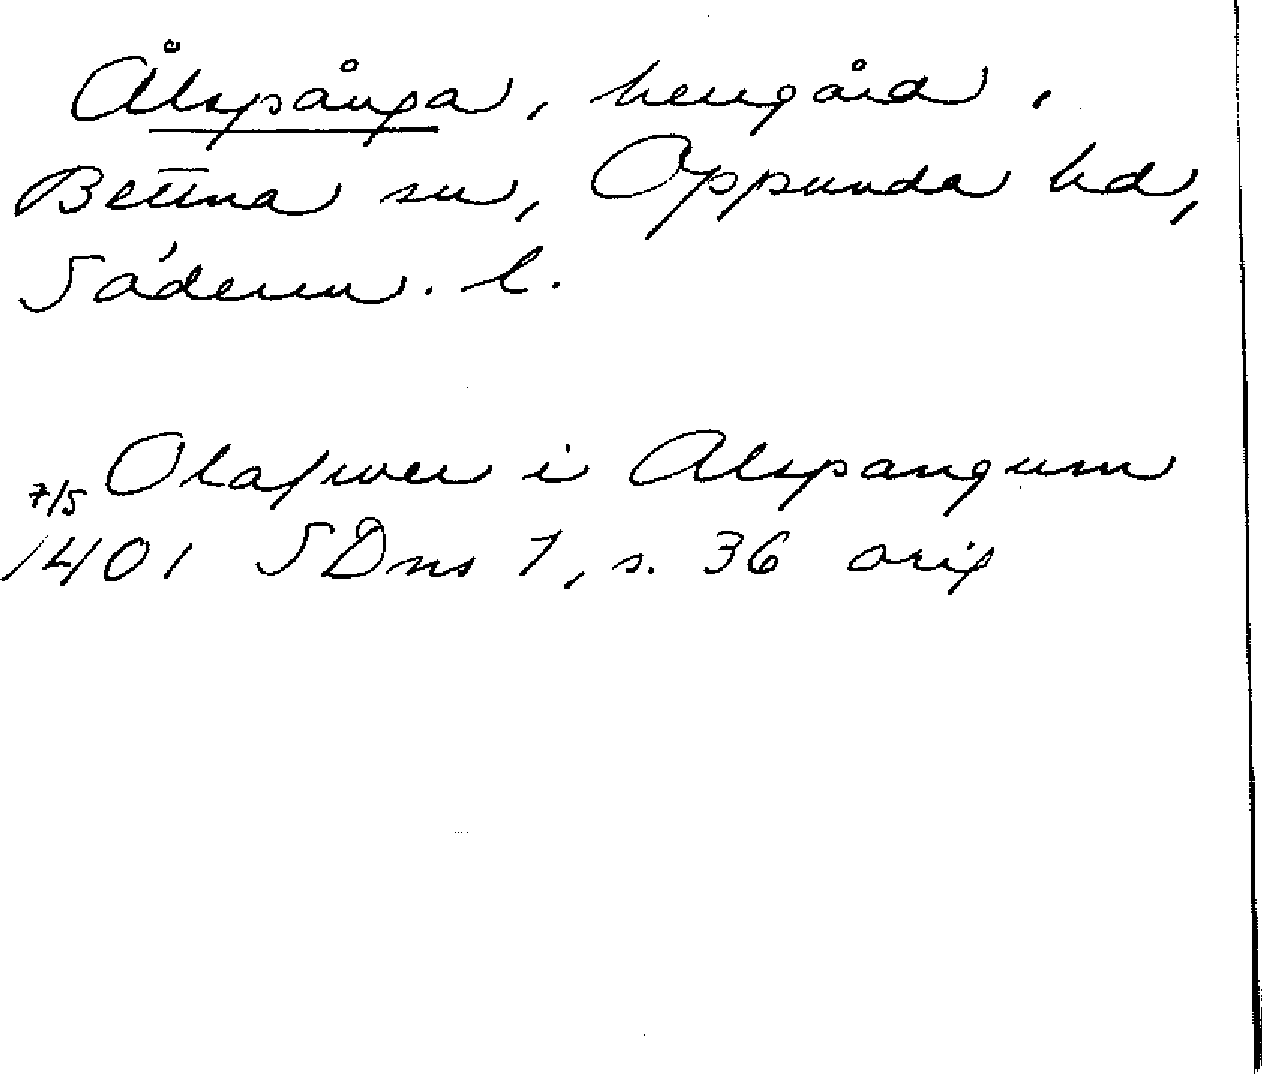 Ålspånga, herrgård,
Bettna sn, Oppunda hd,
Söderm. l.
7/5 Olafwer i Alspangum
1401 SDns 1, s. 36 orig